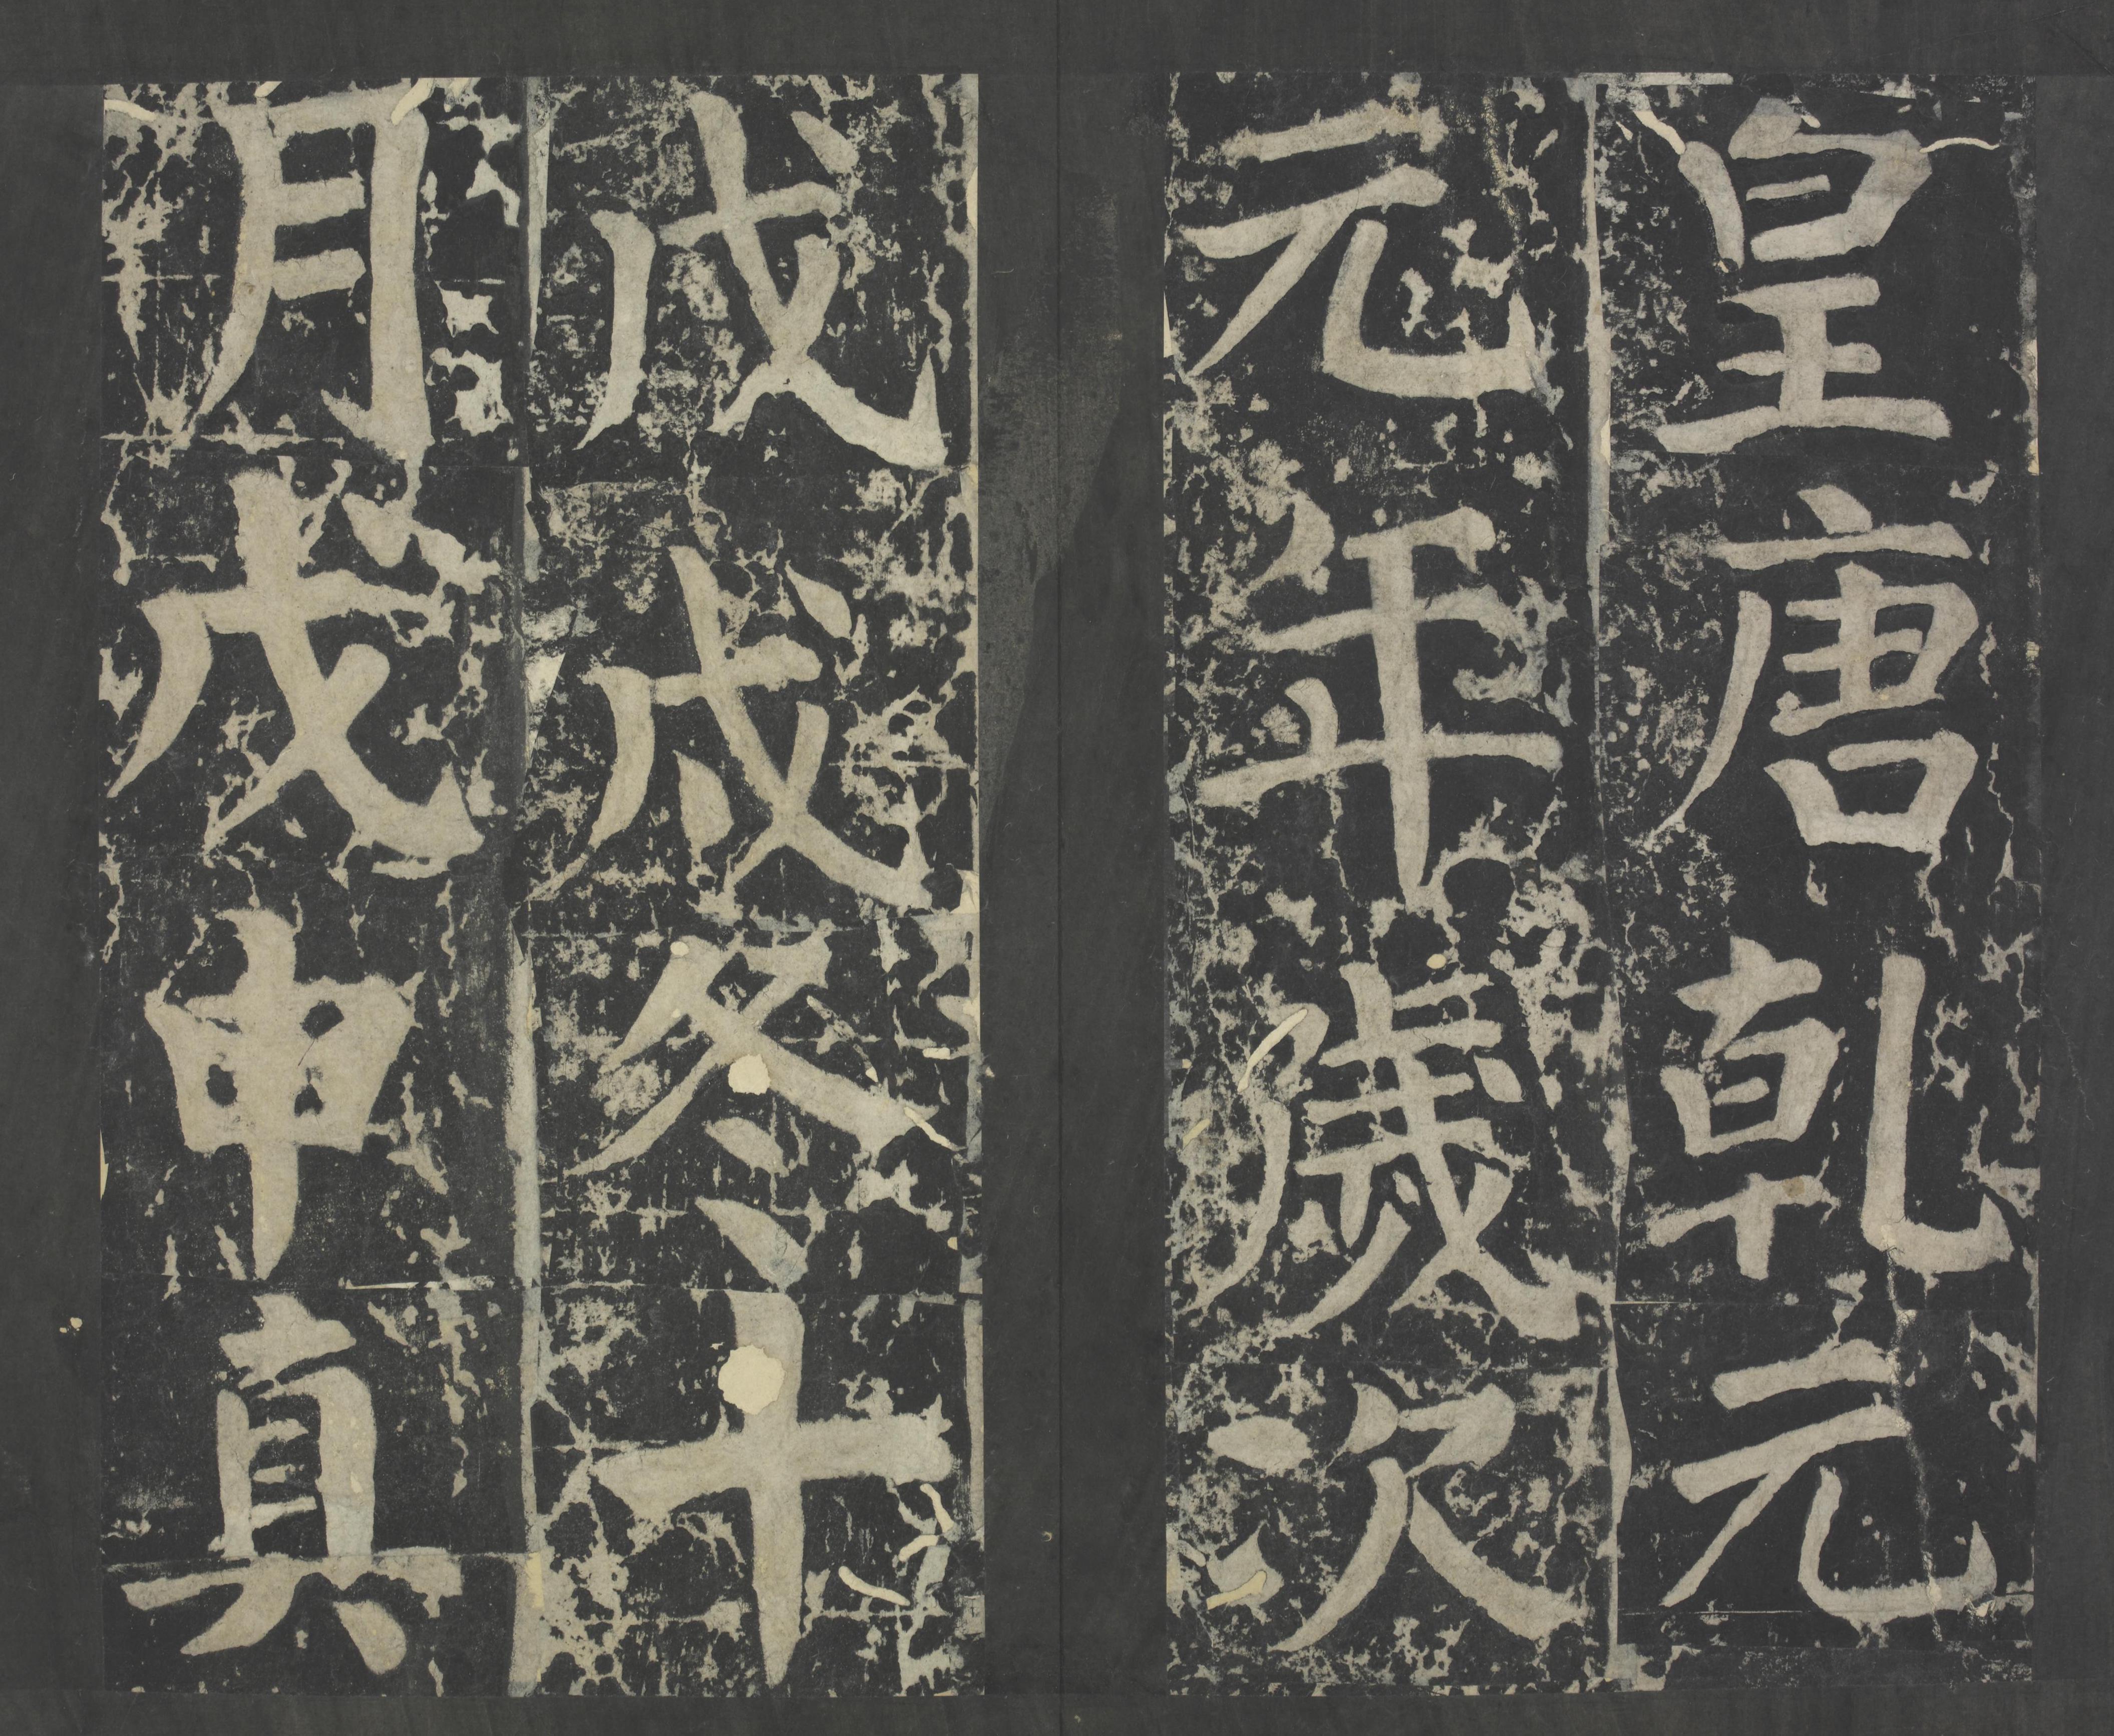 皇唐乾元
元年歲次
戊戌冬十
月戊申真